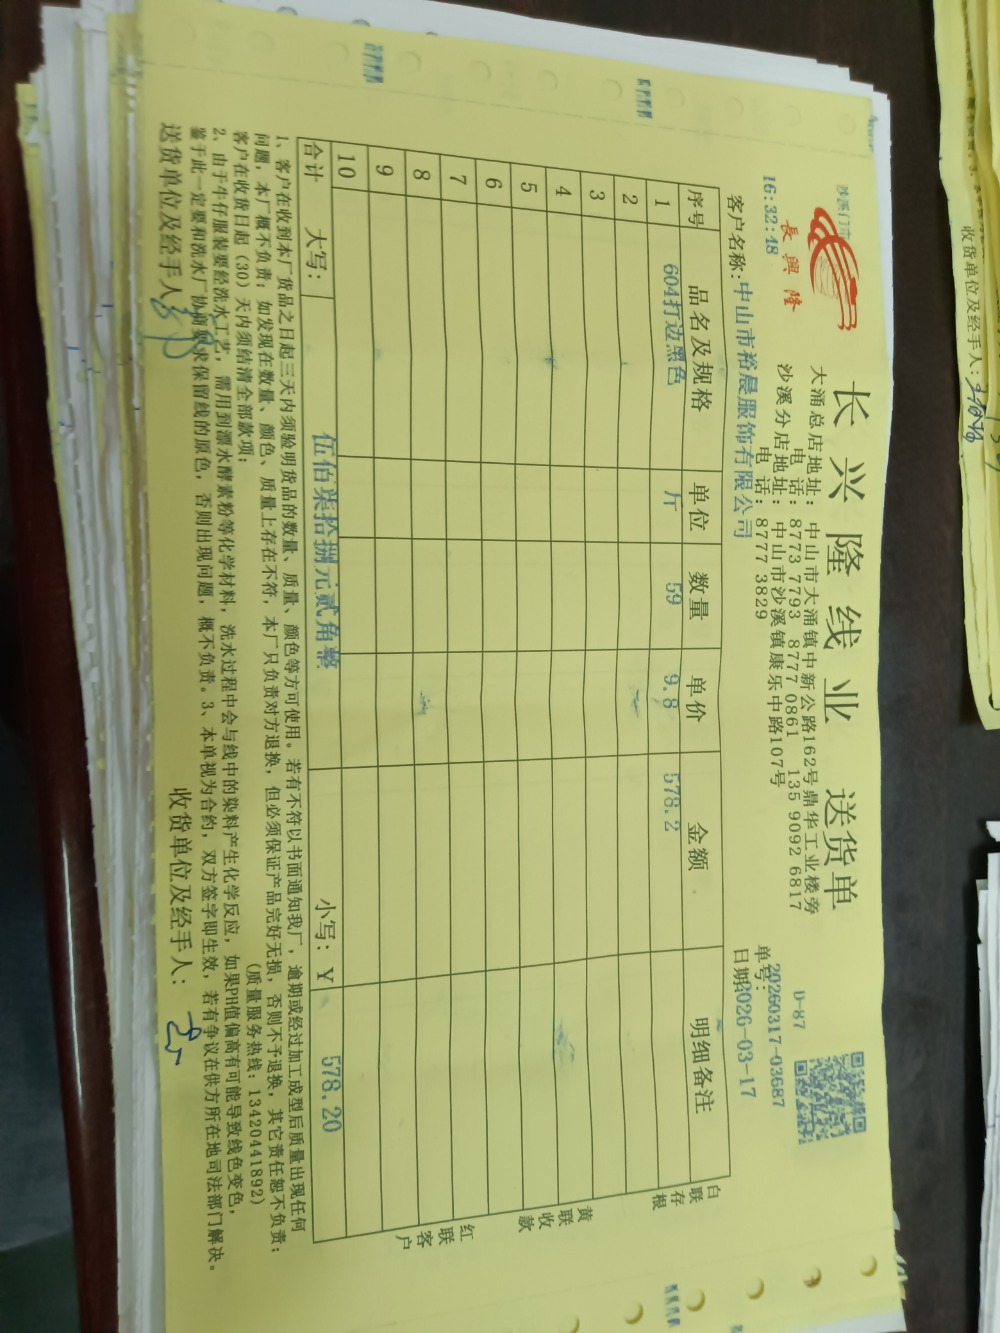 沙溪门市
長興隆
16:32:48
长兴隆线业 送货单
大涌总店地址：中山市大涌镇中新公路162号鼎华工业楼旁
电话：8773 7793 8777 0861 135 9092 6817
沙溪分店地址：中山市沙溪镇康乐中路107号
电话：8777 3829
D-87
单号：20260317-03687
日期：2026-03-17
客户名称：中山市裕晨服饰有限公司
序号 品名及规格 单位 数量 单价 金额 明细备注
1 604打边黑色 斤 59 9.8 578.2
2
3
4
5
6
7
8
9
10
合计 大写： 伍佰柒拾捌元贰角整 小写：￥ 578.20
白联存根
黄联收款
红联客户
1、客户在收到本厂货品之日起三天内须验明货品的数量、质量、颜色等方可使用。若有不符以书面通知我厂，逾期或经过加工成型后质量出现任何
问题，本厂概不负责；如发现在数量、颜色、质量上存在不符，本厂只负责对方退换，但必须保证产品完好无损，否则不予退换，其它责任恕不负责；
客户在收货日起（30）天内须结清全部款项；
(质量服务热线：13420441892)
2、由于牛仔服装要经洗水工艺，需用到漂水酵素粉等化学材料，洗水过程中会与线中的染料产生化学反应，如果PH值偏高有可能导致线色变色，
鉴于此一定要和洗水厂协商要求保留线的原色，否则出现问题，概不负责。3、本单视为合约，双方签字即生效，若有争议在供方所在地司法部门解决。
送货单位及经手人：
收货单位及经手人：
收货单位及经手人：